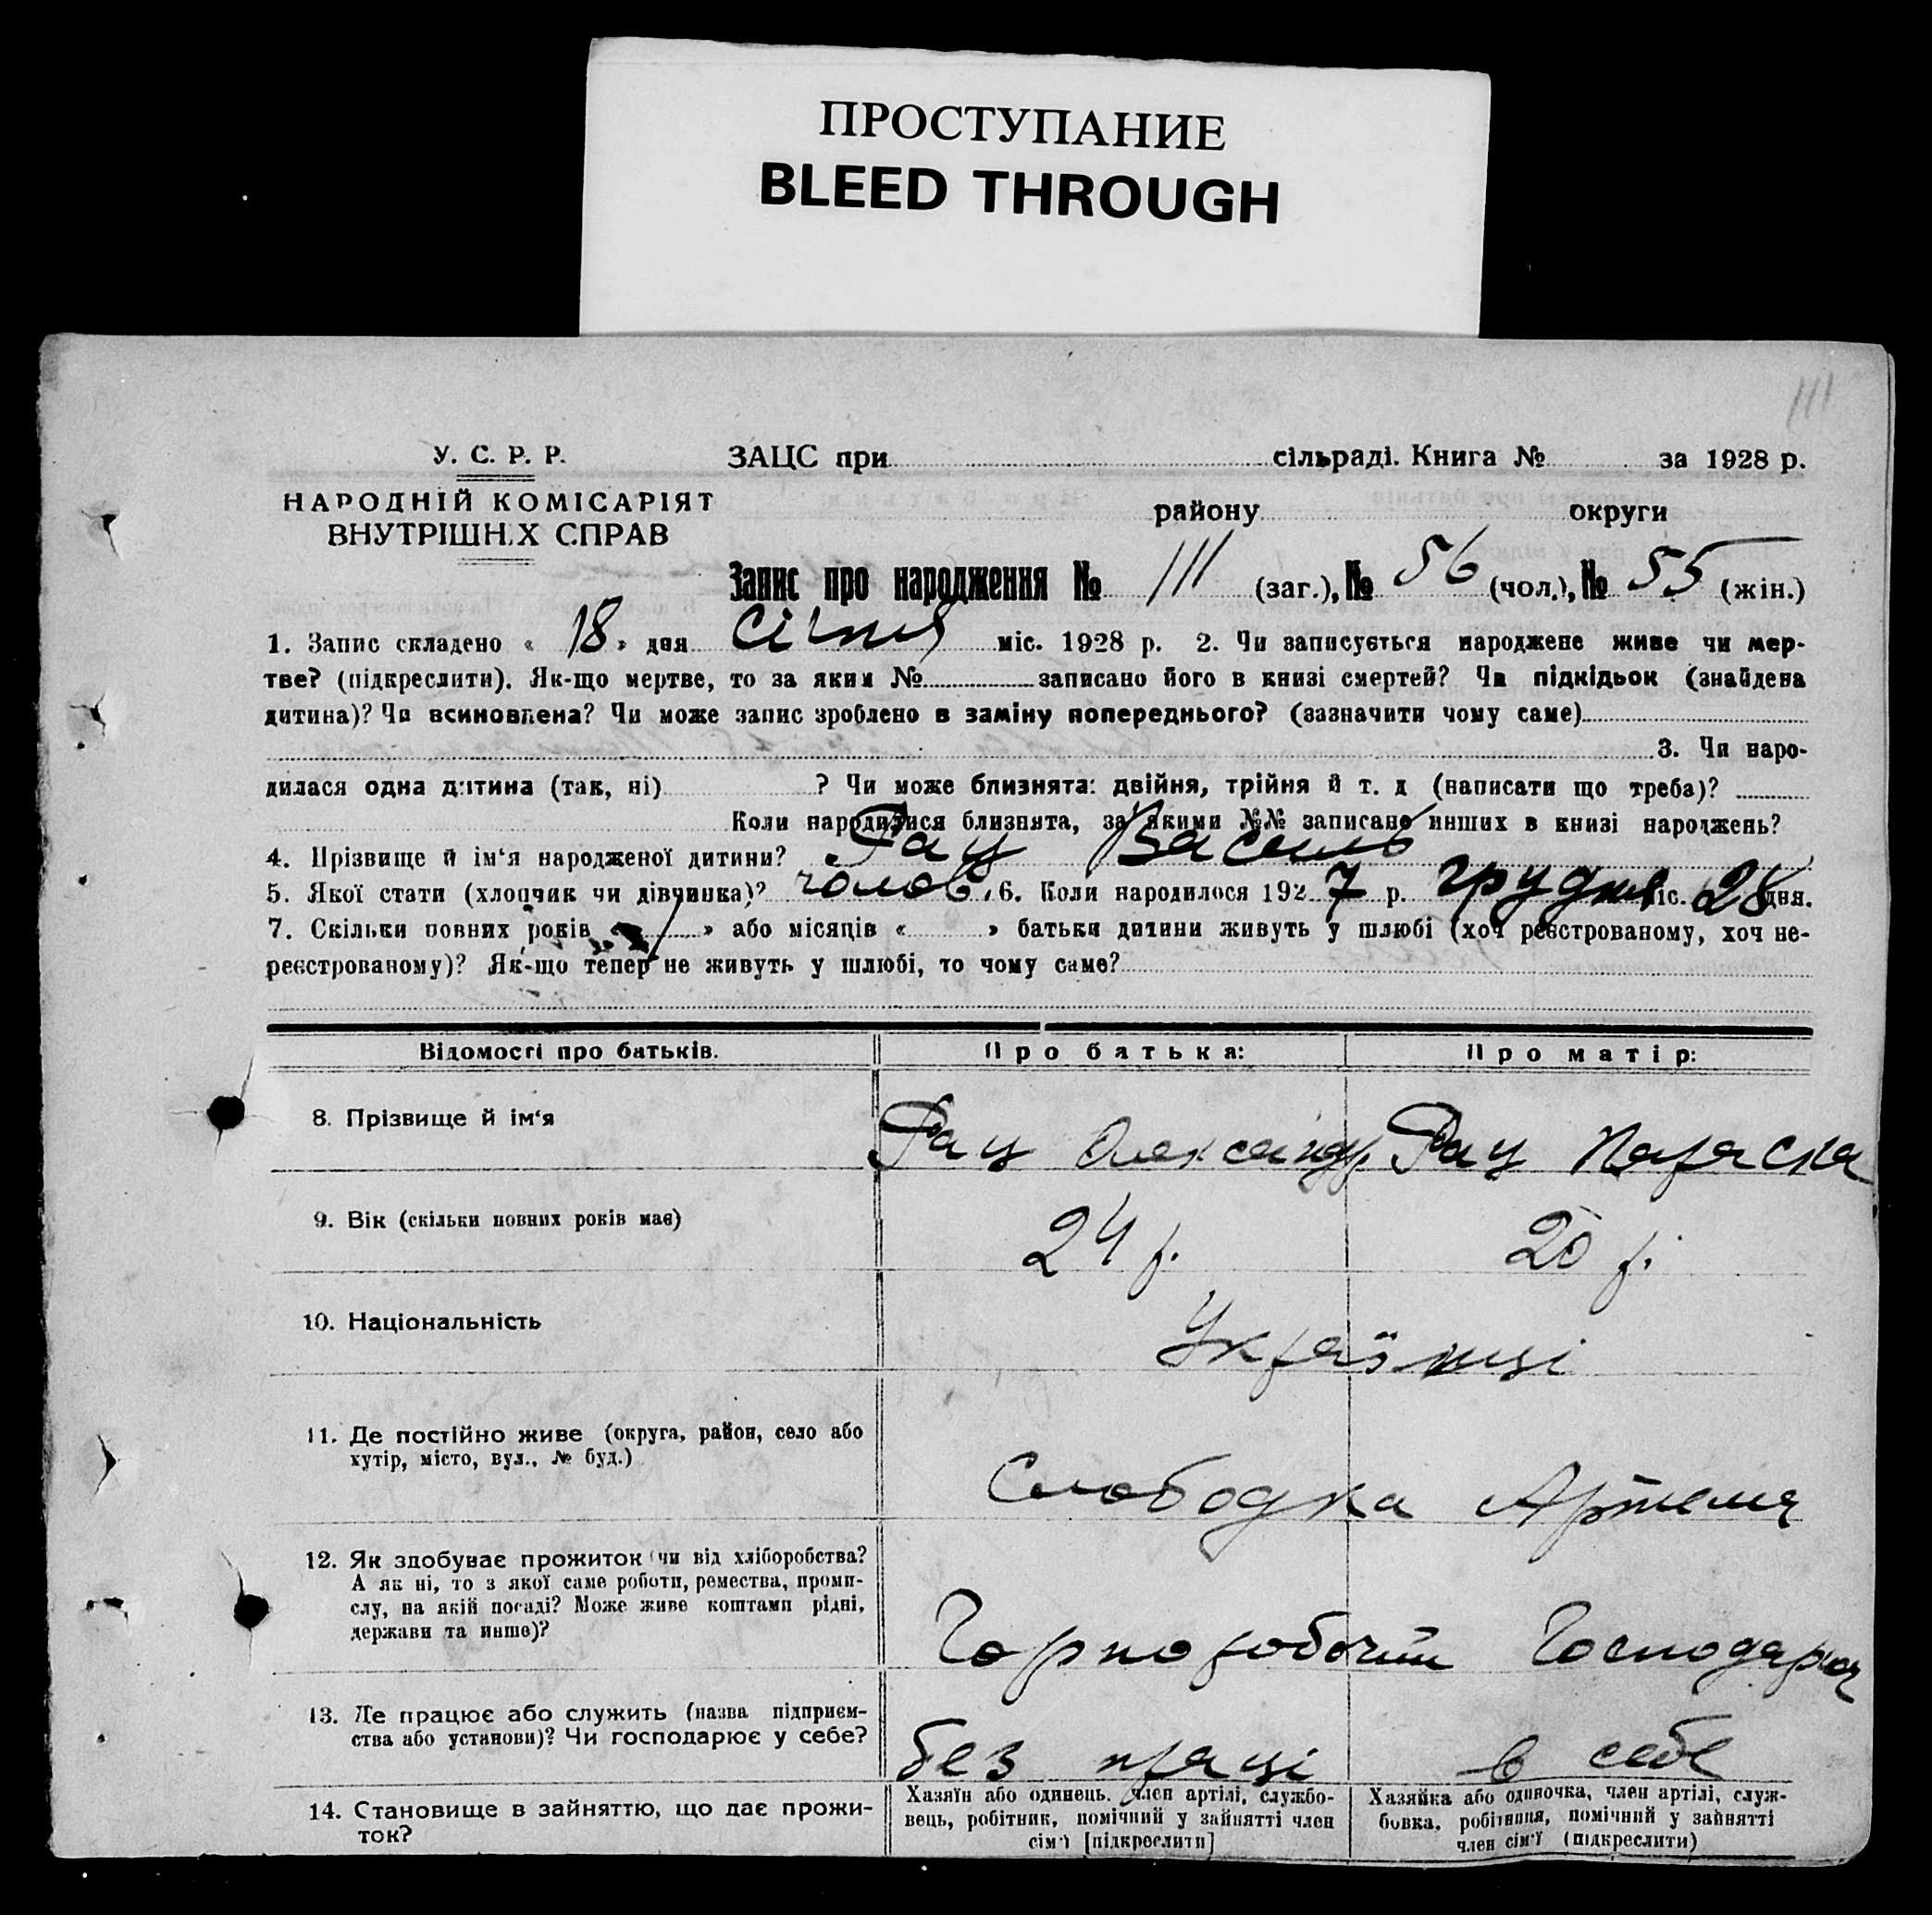 ПРОСТУПАНИЕ
BLEED THROUGH
111
У. С. Р. Р.
ЗАЦС при сільраді. Книга № за 1928 р.
НАРОДНІЙ КОМІСАРІЯТ
району округи
ВНУТРІШН.Х СПРАВ
Запис про народження № 111 (заг.), № 56 (чол.), № 55 (жін.)
1. Запис складено « 18 » дня січня міс. 1928 р. 2. Чи записується народжене живе чи мер-
тве? (підкреслити). Як-що мертве, то за яким № записано його в книзі смертей? Чи підкідьок (знайдена
дитина)? Чи всиновлена? Чи може запис зроблено в заміну попереднього? (зазначити чому саме)
3. Чи наро-
дилася одна дитина (так, ні) ? Чи може близнята: двійня, трійня й т. д (написати що треба)?
Коли народилися близнята, за якими №№ записано инших в книзі народжень?
4. Прізвище й ім‘я народженої дитини? Рац Василь
5. Якої стати (хлопчик чи дівчинка)? чолов 6. Коли народилося 1927 р. грудня міс. 28 дня.
7. Скільки повних років » або місяців « » батьки дитини живуть у шлюбі (хоч реєстрованому, хоч не-
реєстрованому)? Як-що тепер не живуть у шлюбі, то чому саме?
Відомості про батьків. Про батька: Про матір:
8. Прізвище й ім‘я Рац Олександр Рац Параска
9. Вік (скільки повних років має) 24 р. 20 р.
10. Національність Українці
11. Де постійно живе (округа, район, село або
хутір, місто, вул., № буд.)
Слободка Артема
12. Як здобуває прожиток (чи від хліборобства?
А як ні, то з якої саме роботи, ремества, проми-
слу, на якій посаді? Може живе коштами рідні,
держави та инше)?
Чорноробочий Господарка
13. Де працює або служить (назва підприєм-
ства або установи)? Чи господарює у себе?
без праці в себе
14. Становище в зайняттю, що дає прожи-
ток?
Хазяїн або одинець, член артілі, службо-
вець, робітник, помічний у зайнятті член
сім'ї [підкреслити]
Хазяйка або одиночка, член артілі, служ-
бовка, робітниця, помічний у зайнятті
член сім'ї (підкреслити)